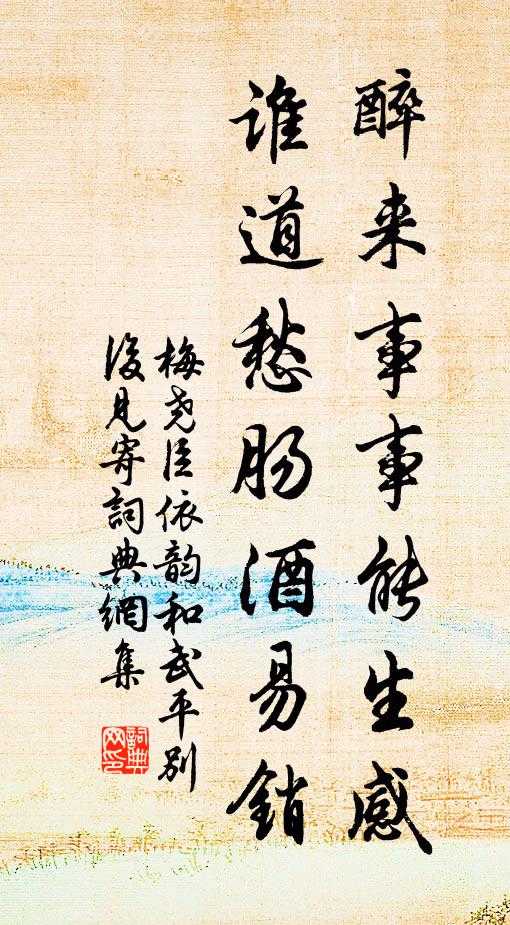 醉来事事能生感
谁道愁肠酒易销
梅尧臣依韵和武平别
後見寄詞典網集
詞典
网印